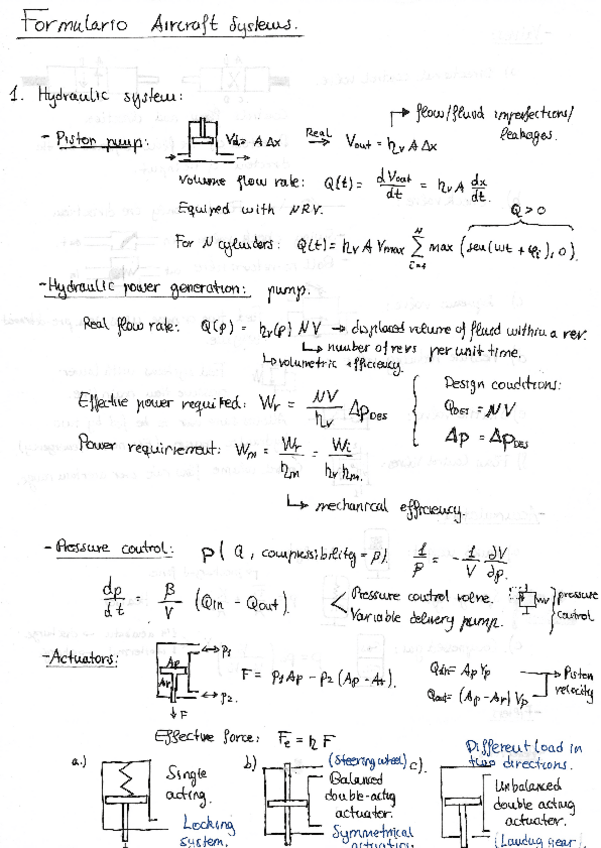 Formulario Aircraft Systems.
1. Hydraulic system:
- Piston pump: Vd = A Δx Real → Vout = ηv A Δx → flow/fluid imperfections/ leakages.
Volume flow rate: Q(t) = dVout/dt = ηv A dx/dt.
Equired with NRV.
Q > 0
For N cylinders: Q(t) = ηv A Vmax Σ_{i=1}^{N} max (sen(ωt + φi), 0)
- Hydraulic power generation: pump:
Real flow rate: Q(p) = ηv(p) N V → displaced volume of fluid within a rev.
↳ number of revs per unit time.
↳ volumetric efficiency
Design conditions:
Effective power required: Wr = NV/ηv ΔpDES
QDES = NV
Δp = ΔpDES
Power requirement: Wm = Wr/ηm = Wi/ηv ηm.
↳ mechanical efficiency.
- Pressure control: p( Q, compressibility = β). 1/β = - 1/V ∂V/∂p.
dp/dt = β/V (Qin - Qout)
< Pressure control valve.
Variable delivery pump.
} pressure control
- Actuators: Ap Ar → p1 ↔ p2. ↓ F
F = p1 Ap - p2 (Ap - Ar).
Qin = Ap Vp
Qout = (Ap - Ar) Vp
→ Piston velocity
Effective force: Fe = η F
a.) Single acting.
Locking system.
b) (Steering wheel)
Balanced double-acting actuator.
Symmetrical
c). Different load in two directions.
Unbalanced double acting actuator.
(Landing gear).